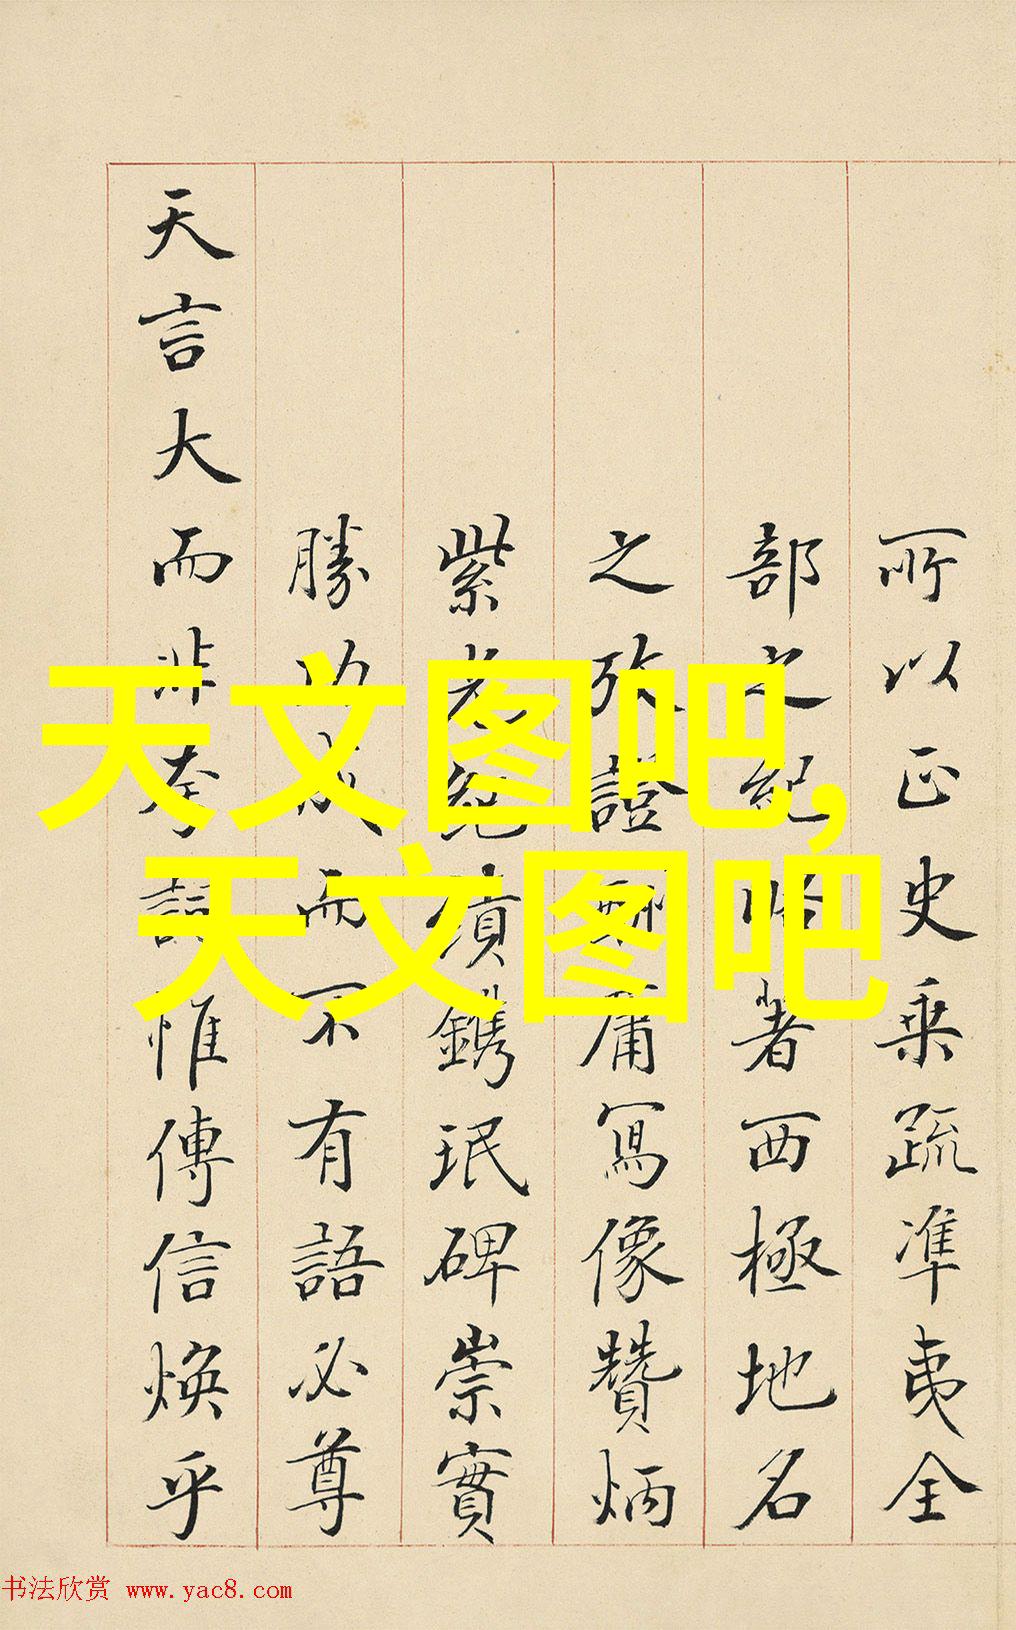 所以正史乘疏凖夷全
部之紀著西極地名
之攷證酬庸寫像贊炳
紫光績鐫珉碑崇實
勝功成而不有語必尊
天言大而非夸詞惟傳信焕乎
天文图吧,
天文图吧
书法欣赏 www.yac8.com